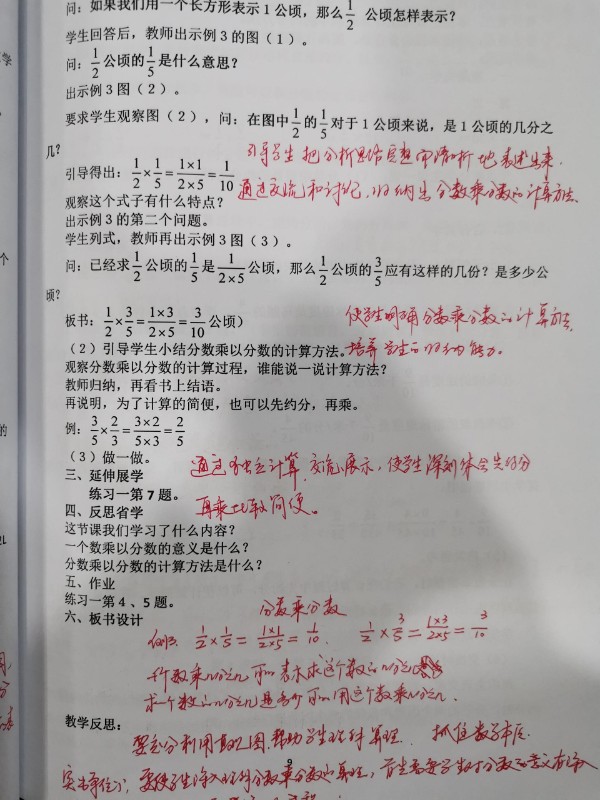 问：如果我们用一个长方形表示1公顷，那么1/2 公顷怎样表示？
学生回答后，教师出示例3的图（1）。
问：1/2公顷的1/5是什么意思？
出示例3图（2）。
要求学生观察图（2），问：在图中1/2的1/5对于1公顷来说，是1公顷的几分之
几？
引导学生把分析思路完整而清晰地表述出来.
引导得出：1/2×1/5=1×1/2×5=1/10
通过交流和讨论,归纳出分数乘分数的计算方法.
观察这个式子有什么特点？
出示例3的第二个问题。
学生列式，教师再出示例3图（3）。
问：已经求1/2公顷的1/5是1/2×5公顷，那么1/2公顷的3/5应有这样的几份？是多少公
顷？
板书：1/2×3/5=1×3/2×5=3/10公顷）
使学生明确分数乘分数的计算方法,
（2）引导学生小结分数乘以分数的计算方法。
培养学生的归纳能力.
观察分数乘以分数的计算过程，谁能说一说计算方法？
教师归纳，再看书上结语。
再说明，为了计算的简便，也可以先约分，再乘。
例：3/5×2/3=3×2/5×3=2/5
（3）做一做。
通过独立计算,交流展示，使学生深刻体会先约分
三、延伸展学
练习一第7题。
再乘比较简便。
四、反思省学
这节课我们学习了什么内容？
一个数乘以分数的意义是什么？
分数乘以分数的计算方法是什么？
五、作业
练习一第4、5题。
六、板书设计
分数乘分数
例3. 1/2×1/5=1×1/2×5=1/10. 1/2×3/5=1×3/2×5=3/10
一个数乘几分之几可以表示求这个数的几分之几
求一个数的几分之几是多少可以用这个数乘几分之几.
教学反思：
要充分利用直观图,帮助学生理解算理. 抓住数学本质
9
要使学生深入理解分数乘分数的算理，首先需要学生对分数的意义有深入